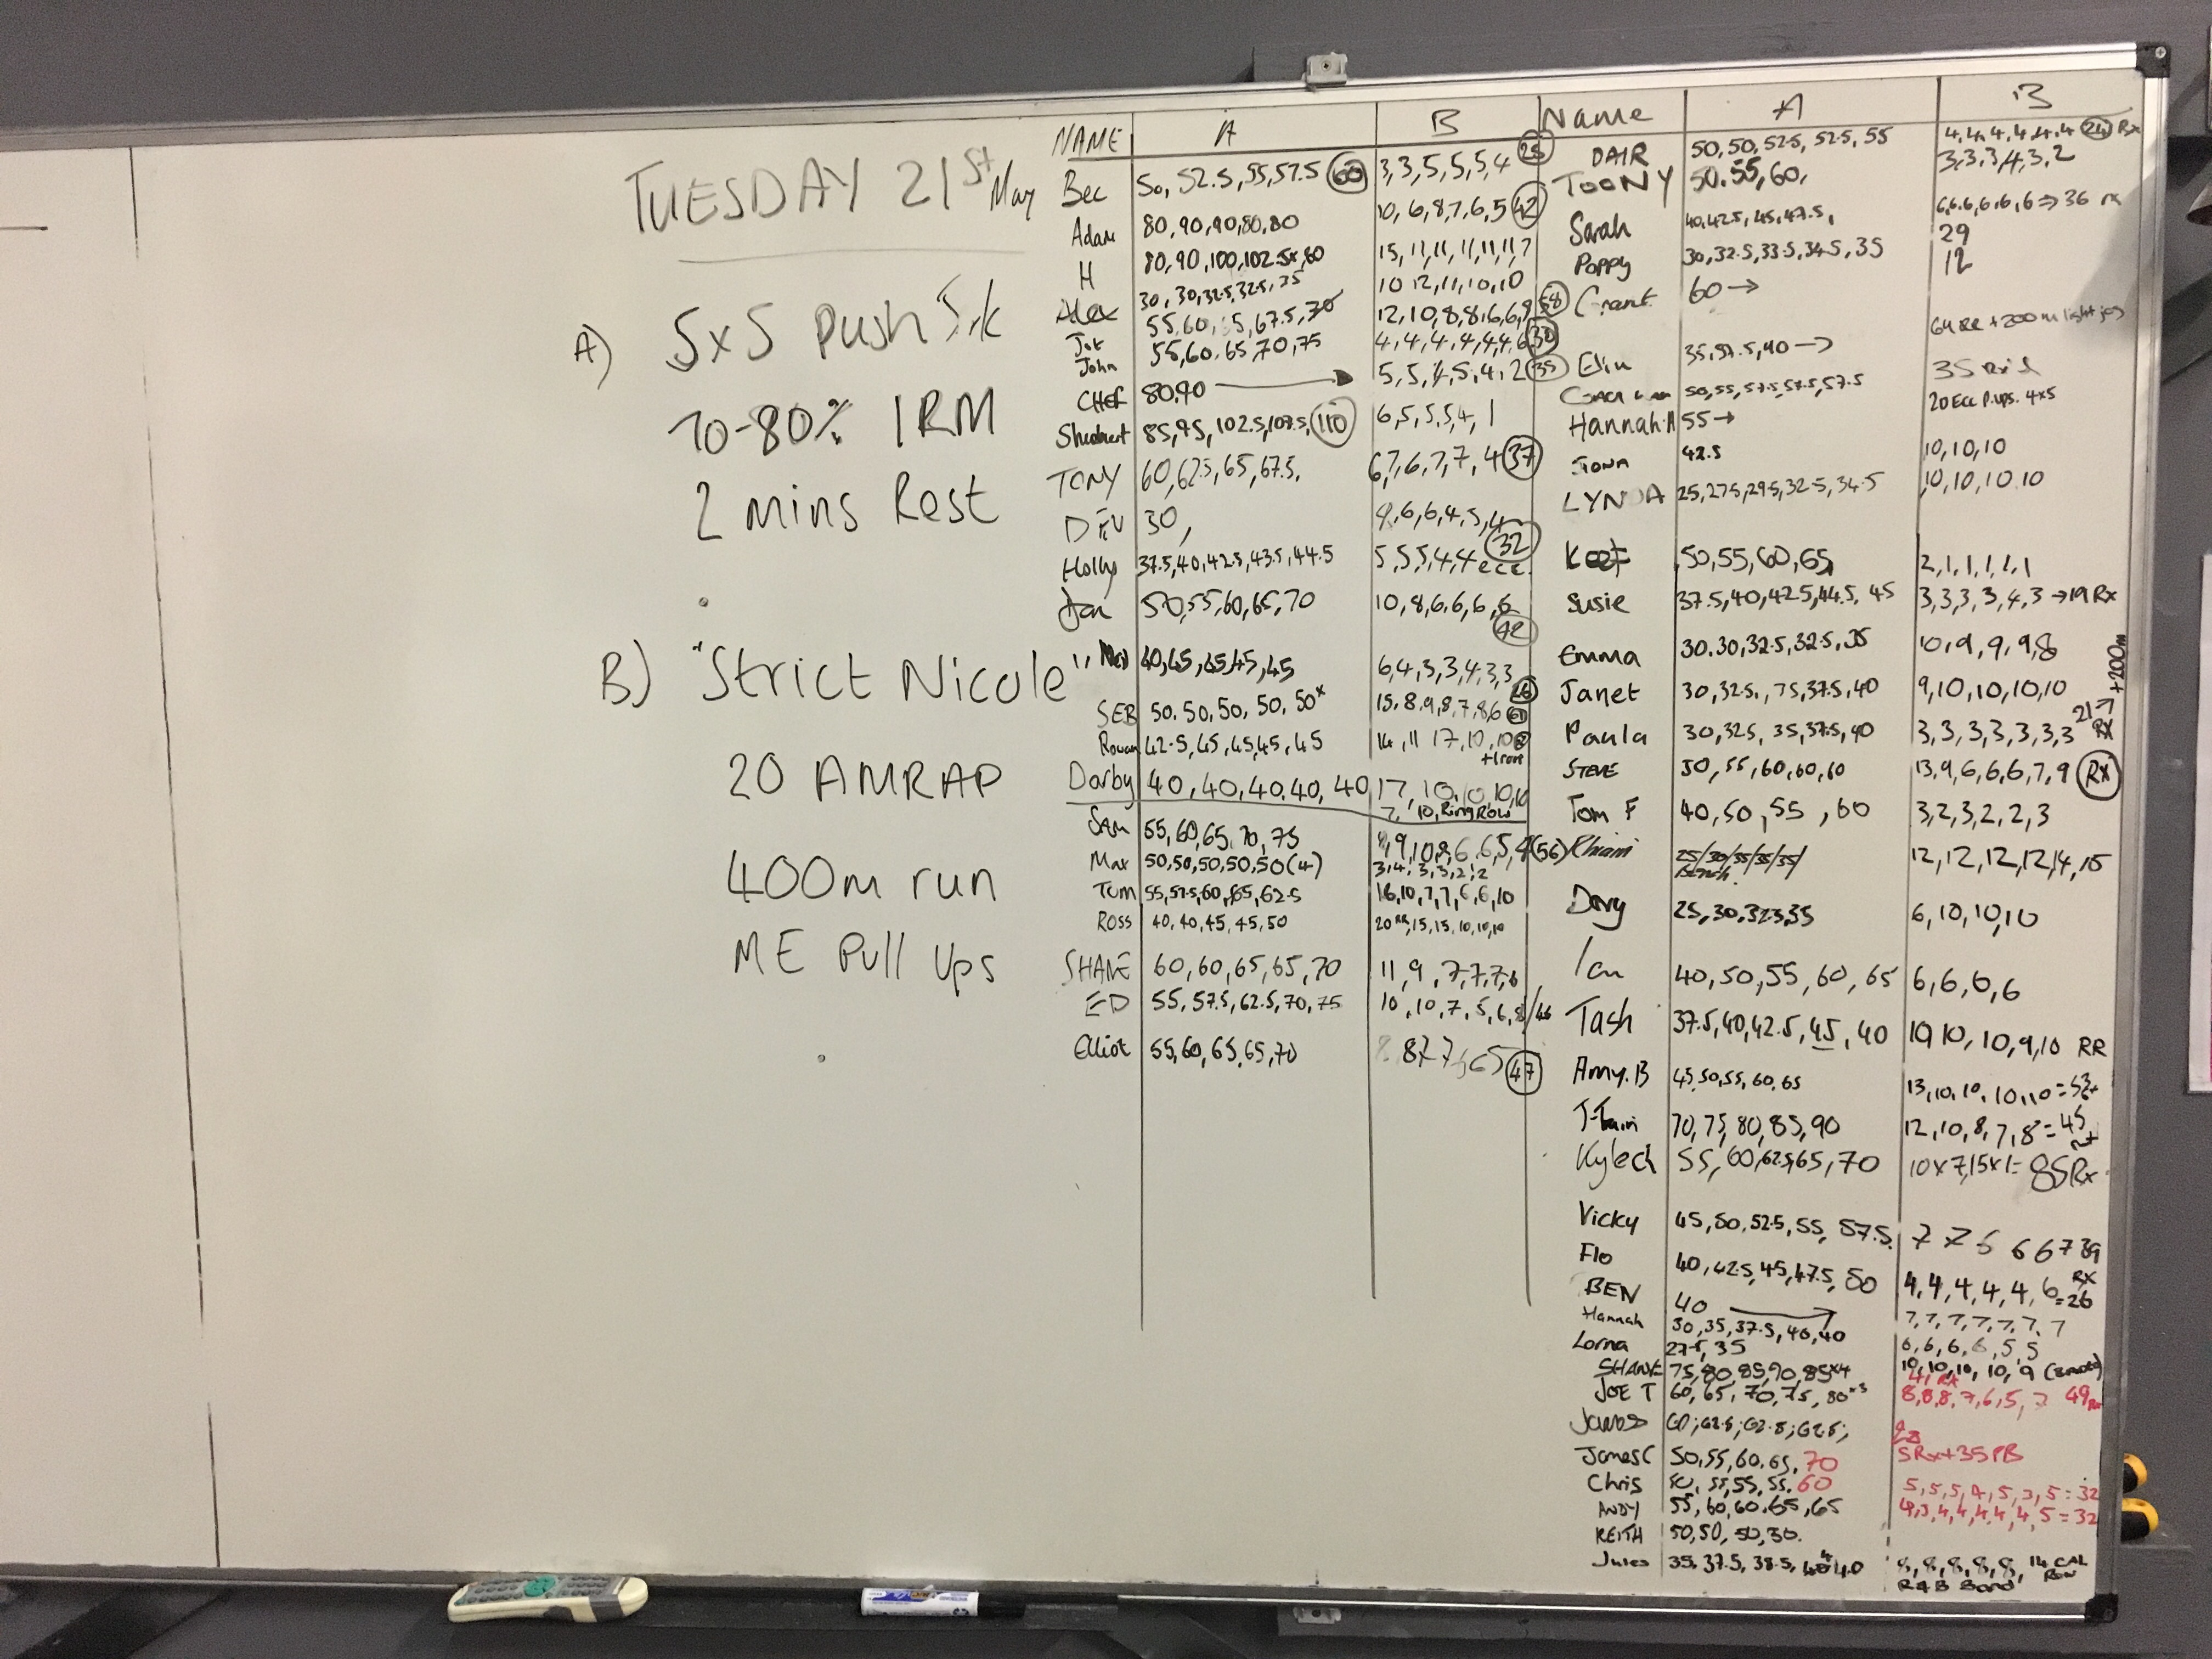 TUESDAY 21st May
A) 5x5 Push Jerk
70-80% 1RM
2 mins Rest
B) "Strict Nicole"
20 AMRAP
400m run
ME Pull Ups
NAME A B
Bec 50, 52.5, 55, 57.5 60 3,3,5,5,5,4 25
Adam 80,90,90,80,80 10,6,8,7,6,5 42
H 80,90,100,102.5x,60 15,11,11,11,11,11,7
Alex 30,30,32.5,32.5,35 10 12,11,10,10
55,60, 67.5,70 12,10,8,8,6,6,9 58
John 55,60,65,70,75 4,4,4,4,4,4,6 30
CHEF 80,90 → 5,5,4,5,4,2 35
85,95,102.5,107.5, 110 6,5,5,5,4,1
TONY 60,62.5,65,67.5, 6,7,6,7,7,4 37
DEV 30, 9,6,6,4,5,4 32
Holly 37.5,40,42.5,43.5,44.5 5,5,5,4,4 ecc.
Dan 50,55,60,65,70 10,8,6,6,6,6 42
40,45,45,45,45 6,4,3,3,4,3,3 26
SEB 50,50,50,50,50x 15,8,9,8,7,8,6 61
Rowan 42.5,45,45,45,45 14,11 17,10,10
Darby 40,40,40,40,40 17,10,10,10,10
7, 10, Ring Row
Sam 55,60,65,70,75 9,10,8,6,6,5,4 (56)
Max 50,50,50,50,50(4) 3,4,3,3,2,2
Tom 55,57.5,60,65,62.5 16,10,7,7,6,6,10
Ross 40,40,45,45,50 20RR,15,15,10,10,10
SHANE 60,60,65,65,70 11,9,7,7,7,6
ED 55,57.5,62.5,70,75 10,10,7,5,6,8/46
Elliot 55,60,65,65,70 8,8,7,7,6,5 47
Name A B
DAIR 50,50,52.5,52.5,55 4,4,4,4,4,4 24 Rx
TOONY 50,55,60, 3,3,3,4,3,2
Sarah 40,42.5,45,47.5, 6,6,6,6,6,6 ⇒ 36 rx
Poppy 30,32.5,33.5,34.5,35 29
12
Grant 60 →
64 RR + 200m light jog
Elin 35,37.5,40 → 35 Rx'd
Coach 50,55,57.5,57.5,57.5 20 Ecc P.ups. 4x5
Hannah.H 55 →
Iona 42.5 10,10,10
LYNDA 25,27.5,29.5,32.5,34.5 10,10,10,10
50,55,60,65, 2,1,1,1,1,1
Susie 37.5,40,42.5,44.5,45 3,3,3,3,4,3 → 19 Rx
Emma 30,30,32.5,32.5,35 10,9,9,9,8
Janet 30,32.5, 37.5,40 9,10,10,10,10
Paula 30,32.5,35,37.5,40 3,3,3,3,3,3,3 21 Rx +200m
STEVE 50,55,60,60,60 13,9,6,6,6,7,9 Rx
Tom F 40,50,55,60 3,2,3,2,2,3
25/30/35/35/35/ 12,12,12,12,14,15
25,30,32.5,35 6,10,10,10
Ian 40,50,55,60,65 6,6,6,6
Tash 37.5,40,42.5,45,40 10,10,10,9,10 RR
Amy.B 45,50,55,60,65 13,10,10,10,10 = 53
70,75,80,85,90 12,10,8,7,8 = 45
55,60,62.5,65,70 10x7,15x1= 85Rx
Vicky 45,50,52.5,55,57.5. 7 7 6 6 6 7 39
Flo 40,42.5,45,47.5,50 4,4,4,4,4,6 = 26 RX
BEN 40 →
Hannah 30,35,37.5,40,40 7,7,7,7,7,7,7
Lorna 27.5,35 6,6,6,6,5,5
SHANE 75,80,85,90,85x4 10,10,10,10,9 (Band)
41 RX
JOE T 60,65,70,75,80x3 8,8,8,7,6,5,7 49 Rx
60;62.5;62.5;62.5; 28
James C 50,55,60,65,70 5Rx+35PB
Chris 50,55,55,55,60 5,5,5,4,5,3,5=32
ANDY 55,60,60,65,65 4,3,4,4,4,4,4,5=32
KEITH 50,50,50,30.
Jules 35,37.5,38.5,40 8,8,8,8,8, 14 CAL Row
R&B Band